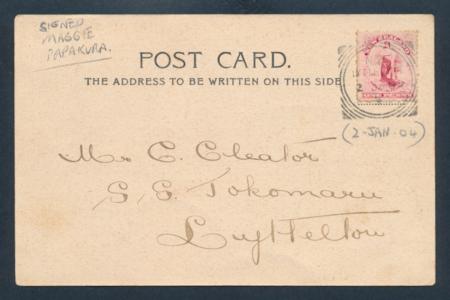 SIGNED
MAGGIE
PAPAKURA.
POST CARD.
THE ADDRESS TO BE WRITTEN ON THIS SIDE
(2-JAN.04)
Mr C. Cleator
S. S. Tokomaru
Lyttelton